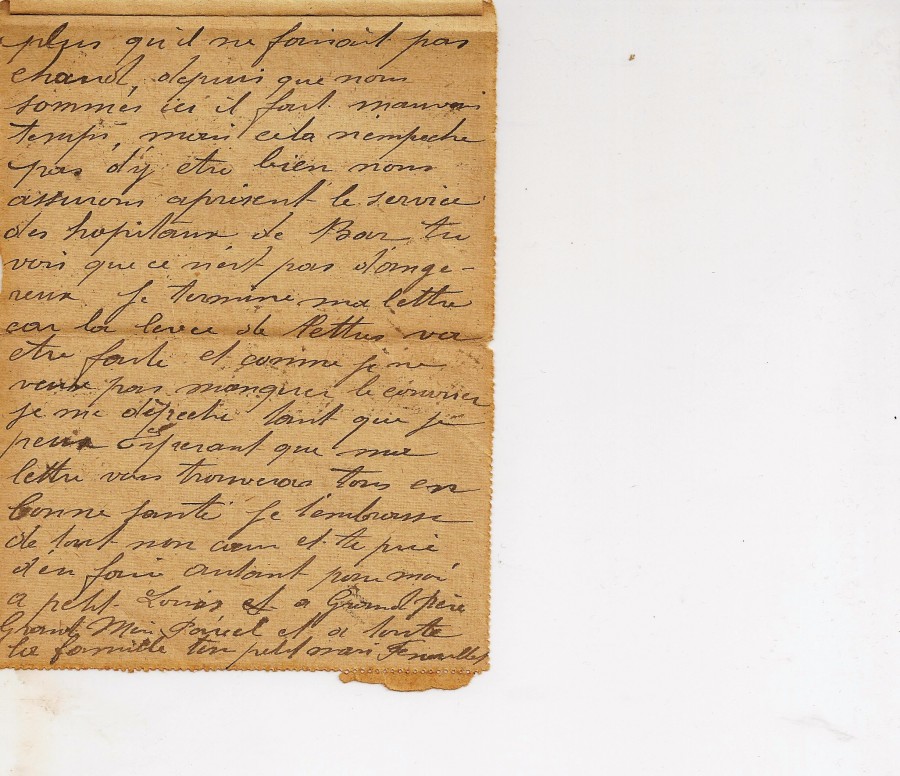 plus qu'il ne faisait pas
chaud, depuis que nous
sommes ici il fait mauvais
temps, mais cela n'empeche
pas d'y etre bien nous
assurons aprésent le service
des hopitaux de Bar, tu
vois que ce n'est pas dange-
reux je termine ma lettre
car la levée de lettres va
etre faite et comme je ne
veux pas manquer le courrier
je me dépeche tant que je
peux esperant que ma
lettre vous trouveras tous en
bonne santé je t'embrasse
de tout mon cœur et te prie
d'en faire autant pour moi
a petit Louis et a Grand père
Grand Mère et a toute
la famille ton petit mari